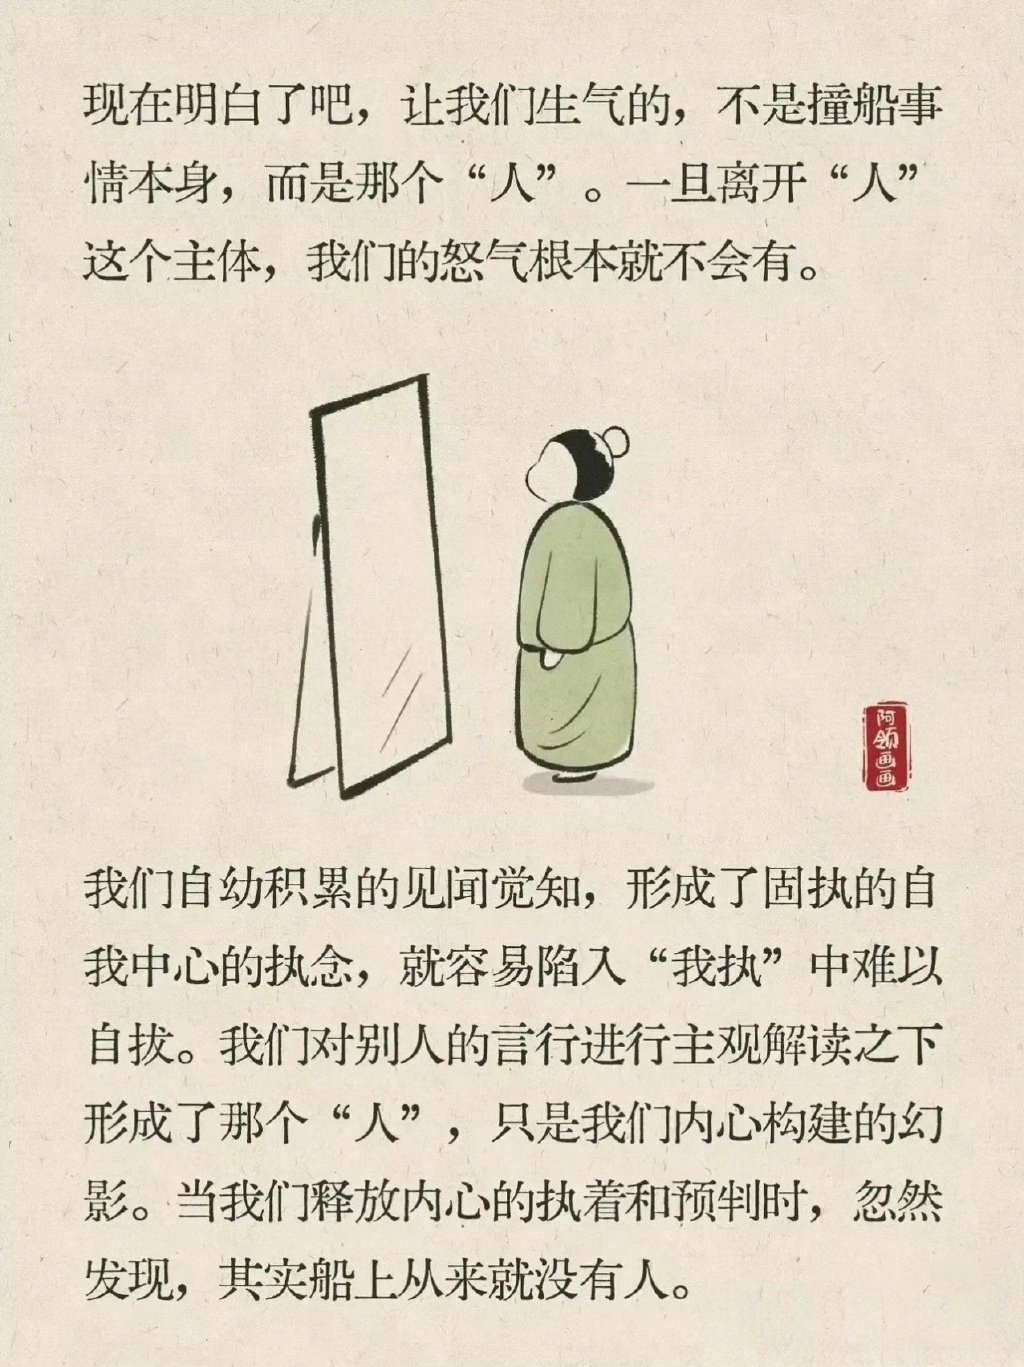 现在明白了吧，让我们生气的，不是撞船事
情本身，而是那个“人”。一旦离开“人”
这个主体，我们的怒气根本就不会有。
阿领画画
我们自幼积累的见闻觉知，形成了固执的自
我中心的执念，就容易陷入“我执”中难以
自拔。我们对别人的言行进行主观解读之下
形成了那个“人”，只是我们内心构建的幻
影。当我们释放内心的执着和预判时，忽然
发现，其实船上从来就没有人。